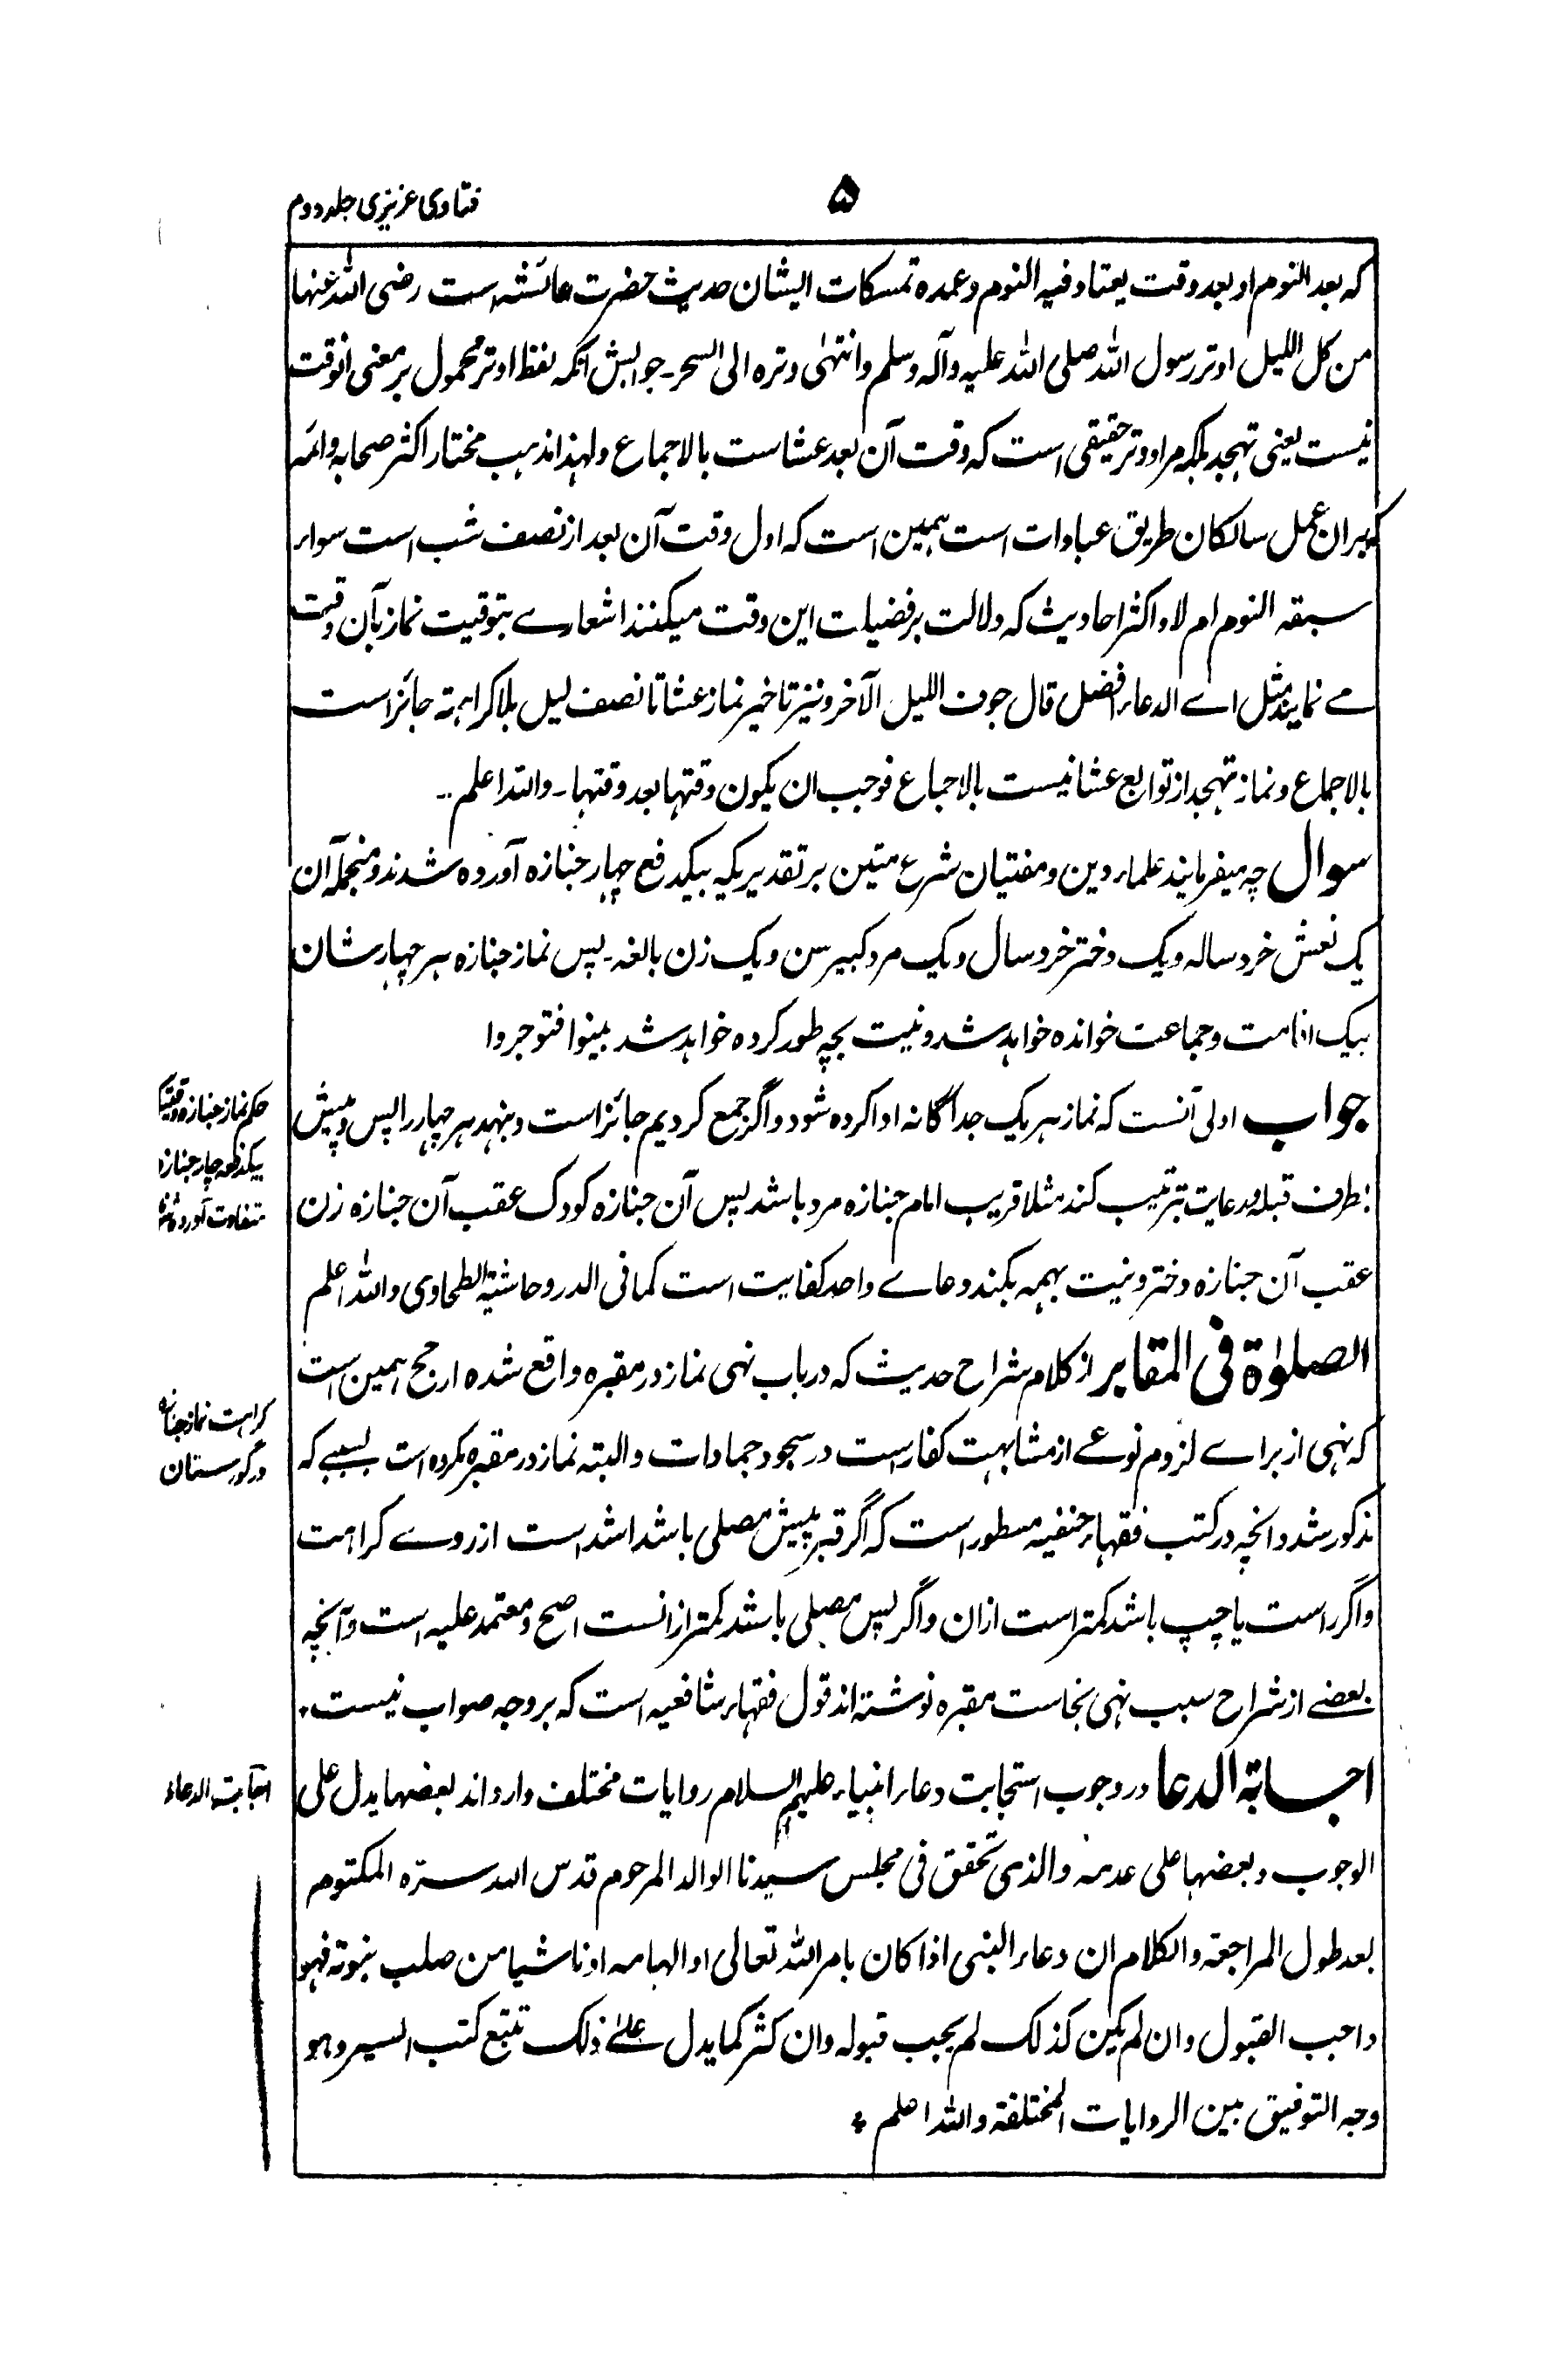 ۵
فتاوی عزیزی جلد دوم
که بعد النوم او بعد وقت یعتاد فیه النوم و عمده تمسکات ایشان حدیث حضرت عائشه است رضی الله عنها
من کل اللیل اوتر رسول الله صلی الله علیه وآله وسلم وانتهی وتره الی السحر۔ جوابش آنکه لفظ اوتر محمول بر معنی
نیست یعنی تهجد بلکه مراد وتر حقیقی است که وقت آن بعد عشاست بالاجماع ولهذا مذهب مختار اکثر صحابه وائمه
که بران عمل سالکان طریق عبادات است همین است که اول وقت آن بعد از نصف شب است سواء
سبقه النوم ام لا و اکثر احادیث که دلالت بر فضیلت این وقت میکنند اشعارے بتوقیت نماز بآن وقت
مے نمایند مثل اے الدعاء افضل قال جوف اللیل الآخر و نیز تاخیر نماز عشا تا نصف لیل بلا کراهته جائز است
بالاجماع و نماز تهجد از توابع عشا نیست بالاجماع فوجب ان یکون وقتها بعد وقتها۔ والله اعلم۔
سوال چه میفرمایند علماء دین و مفتیان شرع متین بر تقدیریکه بیکدفع چهار جنازه آورده شدند و منجمله آن
یک نعش خرد ساله و یک دختر خرد سال و یک مرد کبیر سن و یک زن بالغه۔ پس نماز جنازه هر چهار شان
بیک اقامت و جماعت خوانده خواهد شد و نیت بچه طور کرده خواهد شد بینوا فتوجروا
جواب اولی آنست که نماز هر یک جداگانه ادا کرده شود و اگر جمع کردیم جائز است و بنهد هر چهار را پس و پیش
بطرف قبله و رعایت ترتیب کند مثلا قریب امام جنازه مرد باشد پس آن جنازه کودک عقب آن جنازه زن
عقب آن جنازه دختر و نیت بهمه بکند و دعاے واحد کفایت است کما فی الدر و حاشیة الطحاوی والله اعلم
الصلوٰة فی المقابر از کلام شراح حدیث که در باب نهی نماز در مقبره واقع شده ارجح همین است
که نهی از براے لزوم نوعے از مشابهت کفار است در سجود جمادات و البته نماز در مقبره مکروه است بسببے که
مذکور شد و انچه در کتب فقهاء حنفیه مسطور است که اگر قبر پیش مصلی باشد اشد است از روے کراهت
و اگر راست یا چپ باشد کمتر است ازان و اگر پس مصلی باشد کمتر ازانست اصح و معتمد علیه است و آنچه
بعضے از شراح سبب نهی نجاست مقبره نوشته اند قول فقهاء شافعیه است که بر وجه صواب نیست۔
اجابة الدعا در وجوب استجابت دعاء انبیاء علیهم السلام روایات مختلف وارد اند بعضها یدل علی
الوجوب و بعضها علی عدمه والذی تحقق فی مجلس سیدنا الوالد المرحوم قدس الله سره المکتوم
بعد طول المراجعة والکلام ان دعاء النبی اذا کان بامر الله تعالی او الهامه او ناشیا من صلب نبوته فهو
واجب القبول وان لم یکن کذلک لم یجب قبوله وان کثر کما یدل علے ذلک تتبع کتب السیر وهو
وجه التوفیق بین الروایات المختلفة والله اعلم *
حکم نماز جنازه وقتیکه
بیکدفعه چار جنازه
متفاوت آورده
کراهت نماز جنازه
در گورستان
اجابة الدعاء